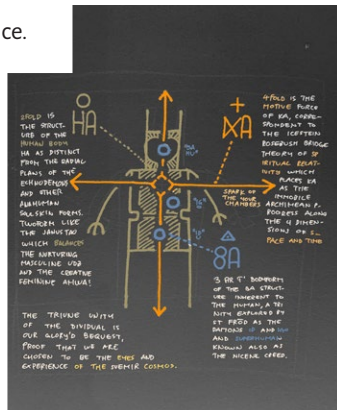 ce.
HA
2FOLD IS
THE STRUCT-
URE OF THE
HUMAN BODY
HA AS DISTINCT
FROM THE RADIAL
PLANS OF THE
ECHINODEMONS
AND OTHER
AHRIMAN
SQLSKIN FORMS.
TWOFORM LIKE
THE JANUSTAO
WHICH BALANCES
THE NURTURING
MASCULINE UDB
AND THE CREATIVE
FEMININE
+
KA
4FOLD IS THE
MOTIVE FORCE
OF KA, CORRE-
SPONDENT TO
THE
ROSERUSH BRIDGE
THEORY OF SP
IRITUAL RELAT-
IVITY WHICH
PLACES KA
AS THE
IMMOBILE
ARCHIMEAN P.
POODLES ALONG
THE 4 DIMEN-
SIONS OF S_
PACE AND TIME
SPARK OF
THE FOUR
CHAMBERS
BA
3 OR T BODYFORM
OF THE BA STRUCT-
URE INHERENT TO
THE HUMAN, A TRI-
NITY EXPLORED BY
ST FRÖD AS THE
DAIMONS
AND SUPERHUMAN
KNOWN ALSO AT
THE NICENE CREED.
THE TRIUNE UNITY
OF THE DIVIDUAL IS
OUR GLORY'D BEQUEST,
PROOF THAT WE ARE
CHOSEN TO BE THE EYES AND
EXPERIENCE OF THE COSMOS.